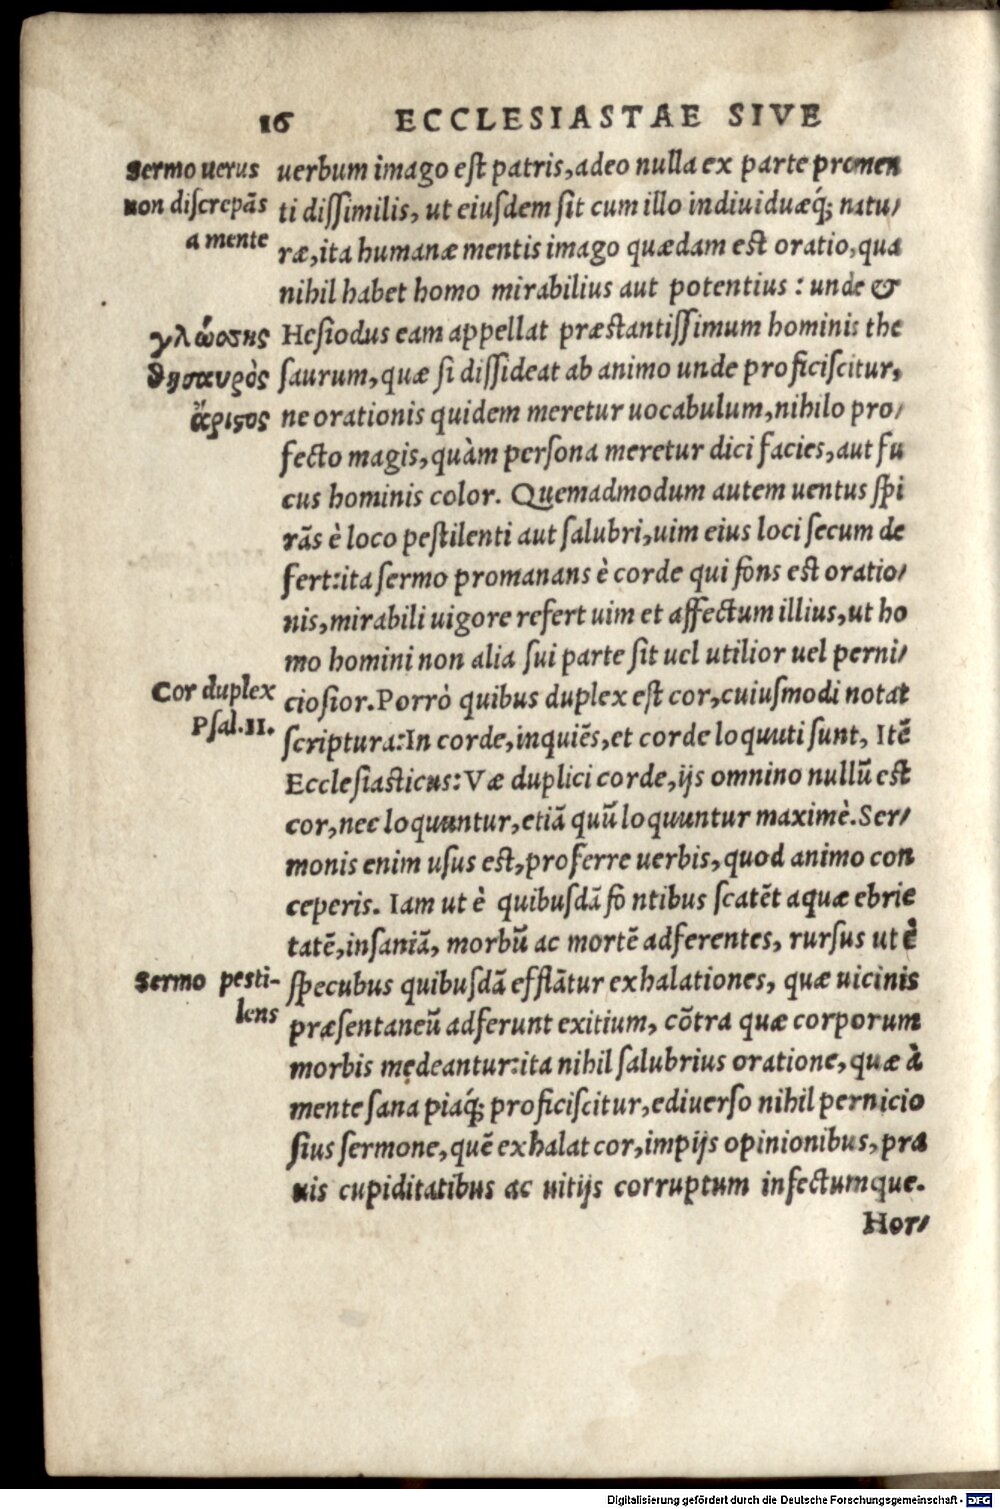 16 ECCLESIASTAE SIVE
Sermo uerus
non discrepãs
a mente
γλώσσης
θησαυρὸς
ἄριστος
Cor duplex
Psal. 11.
Sermo pesti-
lens
uerbum imago est patris, adeo nulla ex parte promen
ti dissimilis, ut eiusdem sit cum illo indiuiduæq́; natu/
ræ, ita humanæ mentis imago quædam est oratio, qua
nihil habet homo mirabilius aut potentius: unde &
Hesiodus eam appellat præstantissimum hominis the
saurum, quæ si dissideat ab animo unde proficiscitur,
ne orationis quidem meretur uocabulum, nihilo pro/
fecto magis, quàm persona meretur dici facies, aut fu
cus hominis color. Quemadmodum autem uentus spi
rãs è loco pestilenti aut salubri, uim eius loci secum de
fert: ita sermo promanans è corde qui fons est oratio/
nis, mirabili uigore refert uim et affectum illius, ut ho
mo homini non alia sui parte sit uel utilior uel perni/
ciosior. Porrò quibus duplex est cor, cuiusmodi notat
scriptura: In corde, inquiẽs, et corde loquuti sunt, Itẽ
Ecclesiasticus: Væ duplici corde, ijs omnino nullũ est
cor, nec loquuntur, etiã quũ loquuntur maximè. Ser/
monis enim usus est, proferre uerbis, quod animo con
ceperis. Iam ut è quibusdã fontibus scatẽt aquæ ebrie
tatẽ, insaniã, morbũ ac mortẽ adferentes, rursus ut è
specubus quibusdã efflãtur exhalationes, quæ uicinis
præsentaneũ adferunt exitium, cõtra quæ corporum
morbis medeantur: ita nihil salubrius oratione, quæ à
mente sana piaq́; proficiscitur, ediuerso nihil pernicio
sius sermone, quẽ exhalat cor, impijs opinionibus, pra
uis cupiditatibus ac uitijs corruptum infectumque.
Hor/
Digitalisierung gefördert durch die Deutsche Forschungsgemeinschaft - DFG